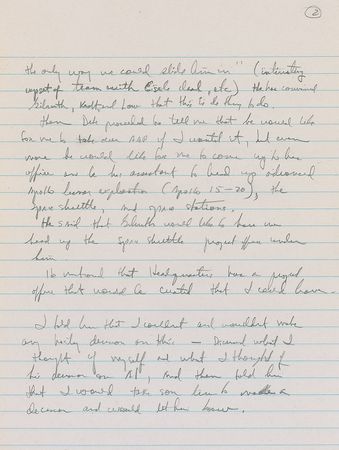 2
the only way we could slide him in" (interesting
upset of team with Eisele dead, etc) He has convinced
Gilruth, Kraft and Low that this is do thing to do.
Then Deke proceeded to tell me that he would like
for me to take over AAP if I wanted it, but even
more he would like for me to come up to his
office and be his assistant to head up advanced
Apollo lunar exploration (Apollo 15-20), the
space shuttle, and space stations.
He said that Gilruth would like to have me
head up the Space Shuttle project office under
him
mentioned that Headquarters has a project
office that would be created that I could have.
I told him that I couldn't and wouldn't make
any hasty decision on this — Discussed what I
thought of myself and what I thought of
his decision on and then told him
that I would take some time to make a
decision and would let him know.